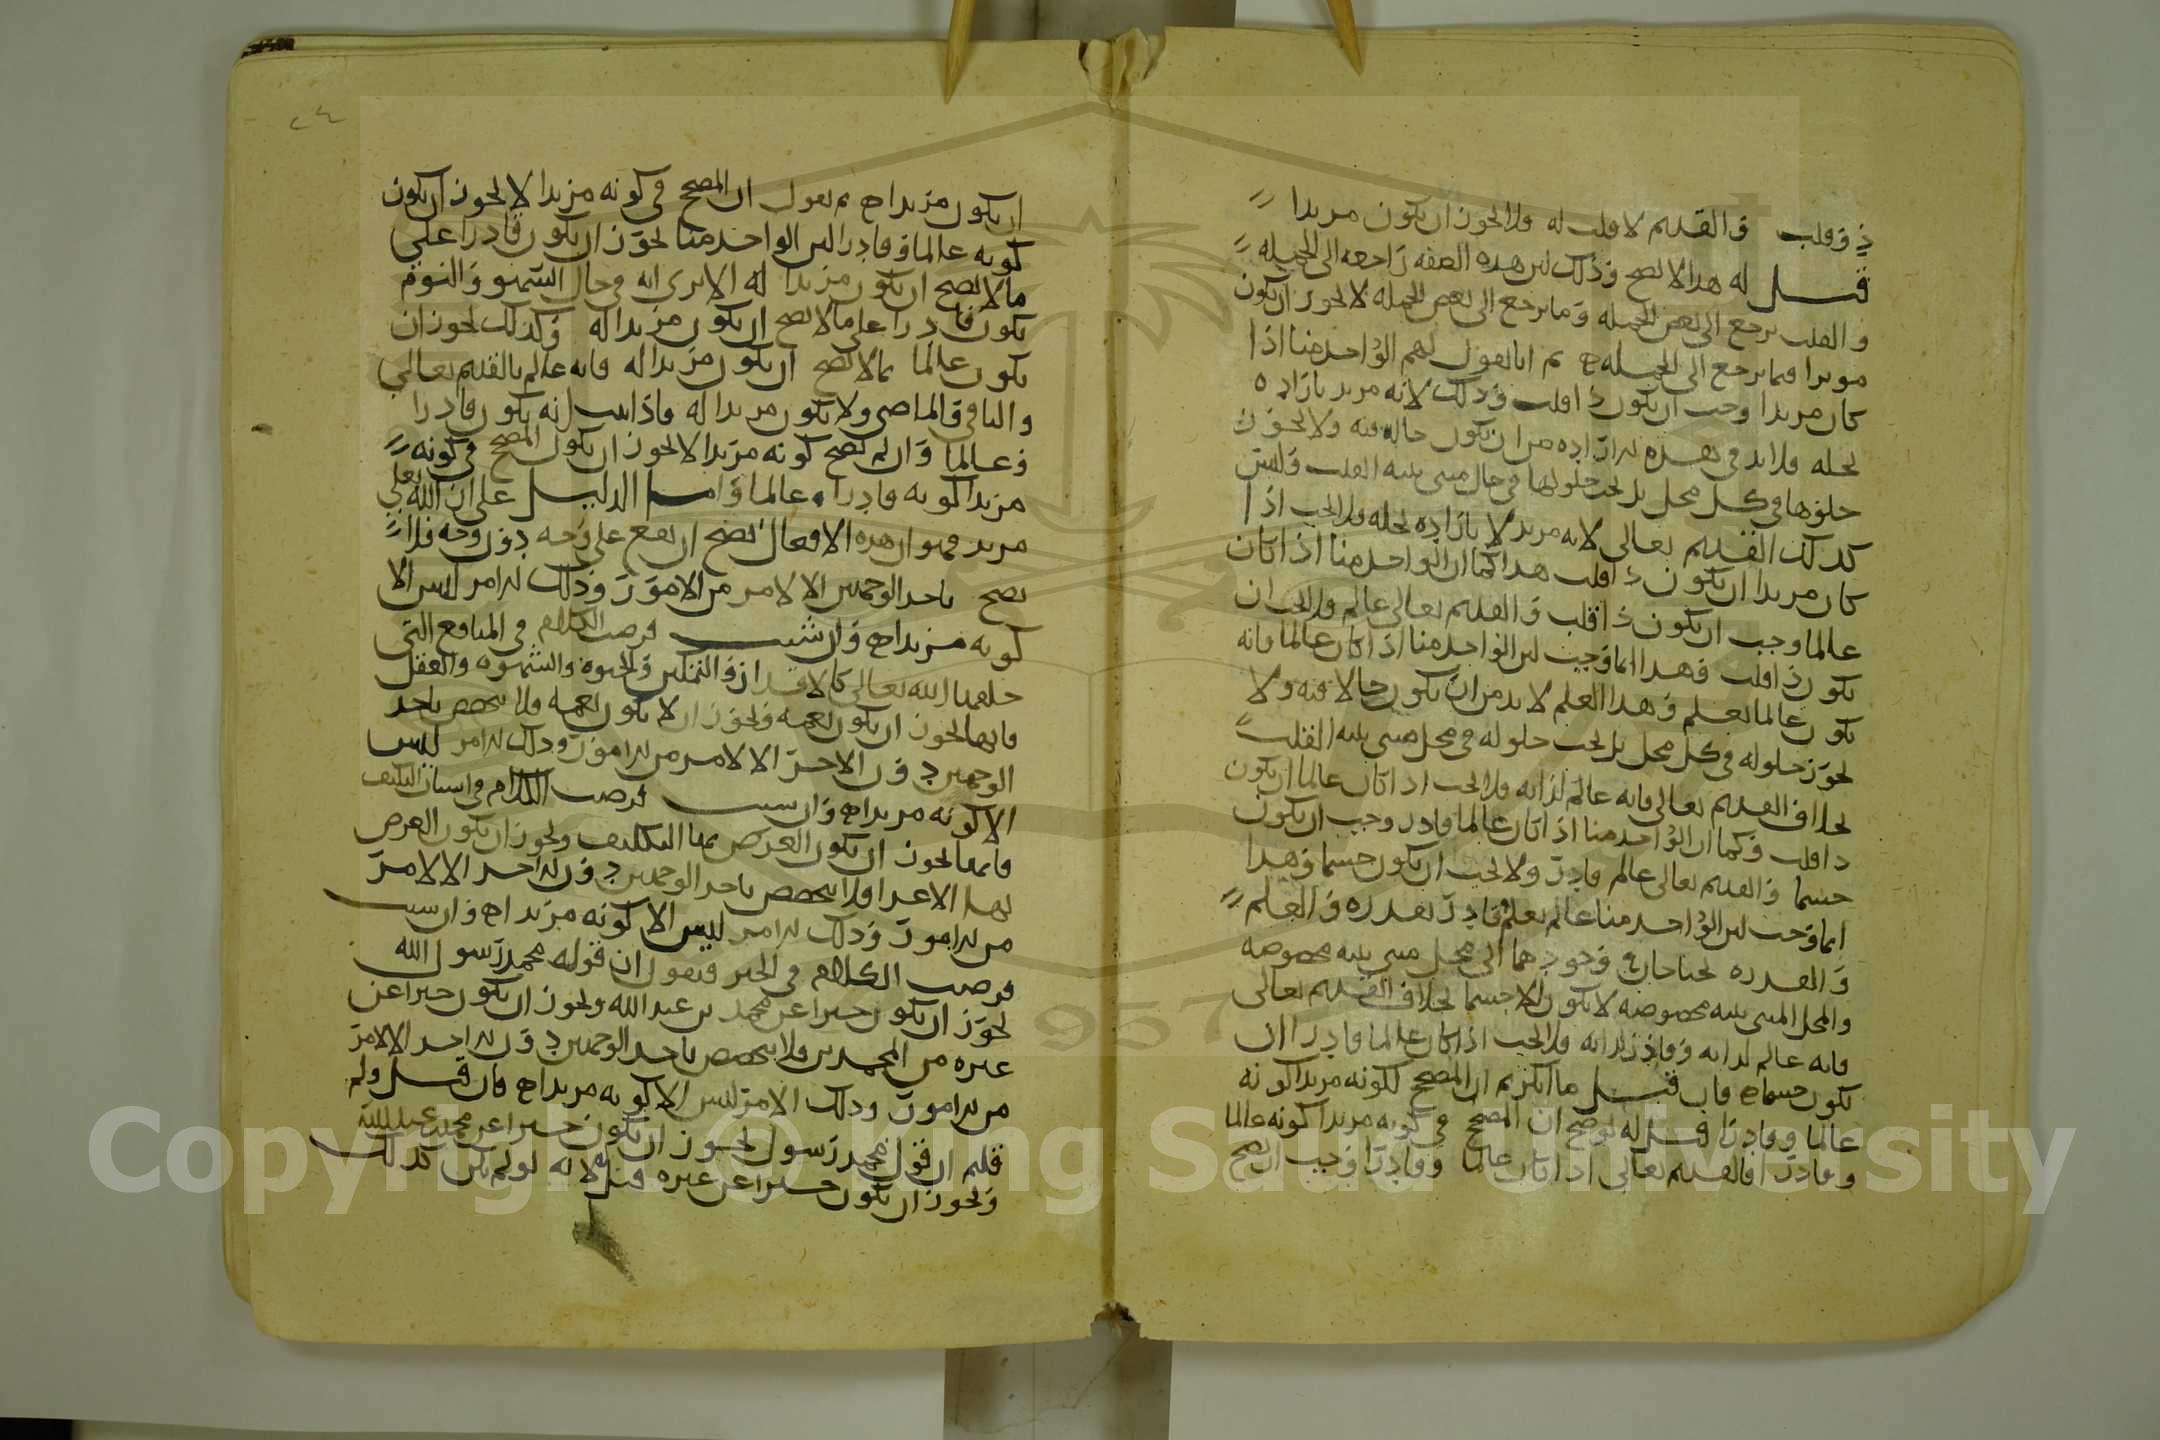 ذو قلب والقديم لا قلب له فلا يجوز ان يكون مريدا
قيل له هذا لا يصح وذلك لان هذه الصفه راجعه الى الجمله
والقلب يرجع الى بعض الجمله وما يرجع الى بعض الجمله لا يجوز ان يكون
موثرا فيما يرجع الى الجمله ثم انا نقول لهم الواحد منا اذا
كان مريدا وجب ان يكون ذا قلب وذلك لانه مريد بارادة
تحله فلا بد في هذه الارادة من ان يكون حاله فيه ولا يجوز
حلولها في كل محل بل يجب حلولها في محل مبني بنيه القلب وليس
كذلك القديم تعالى لانه مريد لا بارادة تحله فلا يجب اذا
كان مريدا ان يكون ذا قلب هذا كما ان الواحد منا اذا كان
عالما وجب ان يكون ذا قلب والقديم تعالى عالم فلا يجب ان
يكون ذا قلب وهذا انما وجب لان الواحد منا اذا كان عالما فانه
يكون عالما بعلم وهذا العلم لا بد من ان يكون حالا فيه ولا
يجوز حلوله في كل محل بل يجب حلوله في محل مبني بنيه القلب
بخلاف القديم تعالى فانه عالم لذاته فلا يجب اذا كان عالما ان يكون
ذا قلب وكما ان الواحد منا اذا كان عالما قادر وجب ان يكون
جسما والقديم تعالى عالم قادر ولا يجب ان يكون جسما وهذا
انما وجب لان الواحد منا عالم بعلم قادر بقدره والعلم
والقدره يحتاجان في وجودهما الى محل مبني بنيه مخصوصه
والمحل المبني بنيه مخصوصه لا يكون الا جسما بخلاف القديم تعالى
فانه عالم لذاته وقادر لذاته فلا يجب اذا كان عالما قادرا ان
يكون جسما فان قيل ما انكرتم ان المصحح لكونه مريدا كونه
عالما وقادرا قيل له لو صح ان المصحح في كونه مريدا كونه عالما
وقادرا فالقديم تعالى اذا كان عالما وقادرا وجب ان يصح
٢٤
ان يكون مريدا ثم نقول ان المصحح في كونه مريدا لا يجوز ان يكون
كونه عالما وقادرا لان الواحد منا يجوز ان يكون قادرا على
ما لا يصح ان يكون مريدا له الا ترى انه في حال السهو والنوم
يكون قادرا على ما لا يصح ان يكون مريدا له وكذلك يجوز ان
يكون عالما بما لا يصح ان يكون مريدا له فانه عالم بالقديم تعالى
والباقي والماضي ولا يكون مريدا له فاذا ثبت انه يكون قادرا
وعالما وان لم يصح كونه مريدا لا يجوز ان يكون المصحح في كونه
مريدا كونه قادرا عالما واما الدليل على ان الله تعالى
مريد فهو ان هذه الافعال يصح ان تقع على وجه دون وجه فلا
يصح باحد الوجهين الا لامر من الامور وذلك الامر ليس الا
كونه مريدا وان شيت فرضت الكلام في المنافع التي
خلقها الله تعالى كالاقدار والتمكين والحيوه والشهوه والعقل
فانها يجوز ان يكون نعمه ويجوز ان لا يكون نعمه ولا يتخصص باحد
الوجهين دون الاخر الا لامر من الامور وذلك الامر ليس
الا كونه مريدا وان شيت فرضت الكلام في اسباب التكليف
فانها يجوز ان يكون الغرض بها التكليف ويجوز ان يكون الغرض
بها الاغرا ولا يتخصص باحد الوجهين دون الاخر الا لامر
من الامور وذلك الامر ليس الا كونه مريدا وان شيت
فرضت الكلام في الخبر فنقول ان قوله محمد رسول الله
يجوز ان يكون خبرا عن محمد بن عبد الله ويجوز ان يكون خبرا عن
غيره من المحمدين ولا يتخصص باحد الوجهين دون الاخر الا لامر
من الامور وذلك الامر ليس الا كونه مريدا فان قيل ولم
قلتم ان قول محمد رسول يجوز ان يكون خبرا عن محمد بن عبد الله
ويجوز ان يكون خبرا عن غيره قيل لانه لو لم يكن كذلك
Copyright © King Saud University
1957